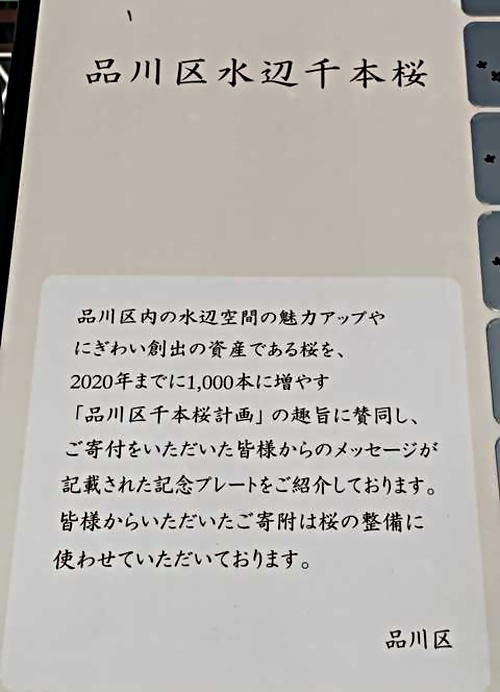 品川区水辺千本桜
品川区内の水辺空間の魅力アップや
にぎわい創出の資産である桜を、
2020年までに1,000本に増やす
「品川区千本桜計画」の趣旨に賛同し、
ご寄付をいただいた皆様からのメッセージが
記載された記念プレートをご紹介しております。
皆様からいただいたご寄附は桜の整備に
使わせていただいております。
品川区